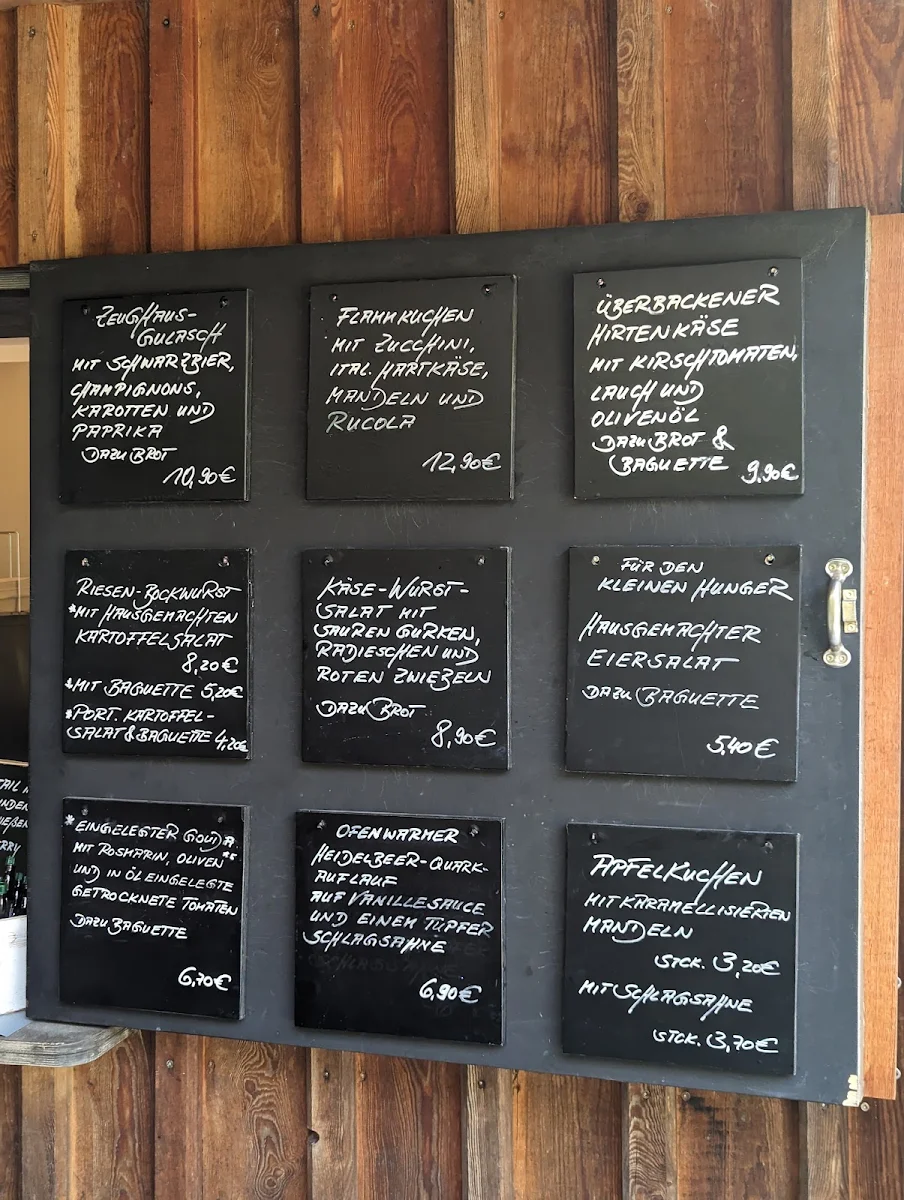 ZEUGHAUS-
GULASCH
MIT SCHWARZBIER,
CHAMPIGNONS,
KAROTTEN UND
PAPRIKA
DAZU BROT
10,90€
FLAMMKUCHEN
MIT ZUCCHINI,
ITAL. HARTKÄSE,
MANDELN UND
RUCOLA
12,90€
ÜBERBACKENER
HIRTENKÄSE
MIT KIRSCHTOMATEN,
LAUCH UND
OLIVENÖL
DAZU BROT &
BAGUETTE
9,90€
RIESEN-BOCKWURST
*MIT HAUSGEMACHTEN
KARTOFFELSALAT
8,20€
*MIT BAGUETTE 5,20€
*PORT. KARTOFFEL-
SALAT & BAGUETTE 4,20€
KÄSE-WURST-
SALAT MIT
SAUREN GURKEN,
RADIESCHEN UND
ROTEN ZWIEBELN
DAZU BROT
8,90€
FÜR DEN
KLEINEN HUNGER
HAUSGEMACHTER
EIERSALAT
DAZU BAGUETTE
5,40€
*EINGELEGTER GOUDA
MIT ROSMARIN, OLIVEN
UND IN ÖL EINGELEGTE
GETROCKNETE TOMATEN
DAZU BAGUETTE
6,70€
OFENWARMER
HEIDELBEER-QUARK-
AUFLAUF
AUF VANILLESAUCE
UND EINEM TUPFER
SCHLAGSAHNE
6,90€
APFELKUCHEN
MIT KARAMELLISIERTEN
MANDELN
STCK. 3,20€
MIT SCHLAGSAHNE
STCK. 3,70€